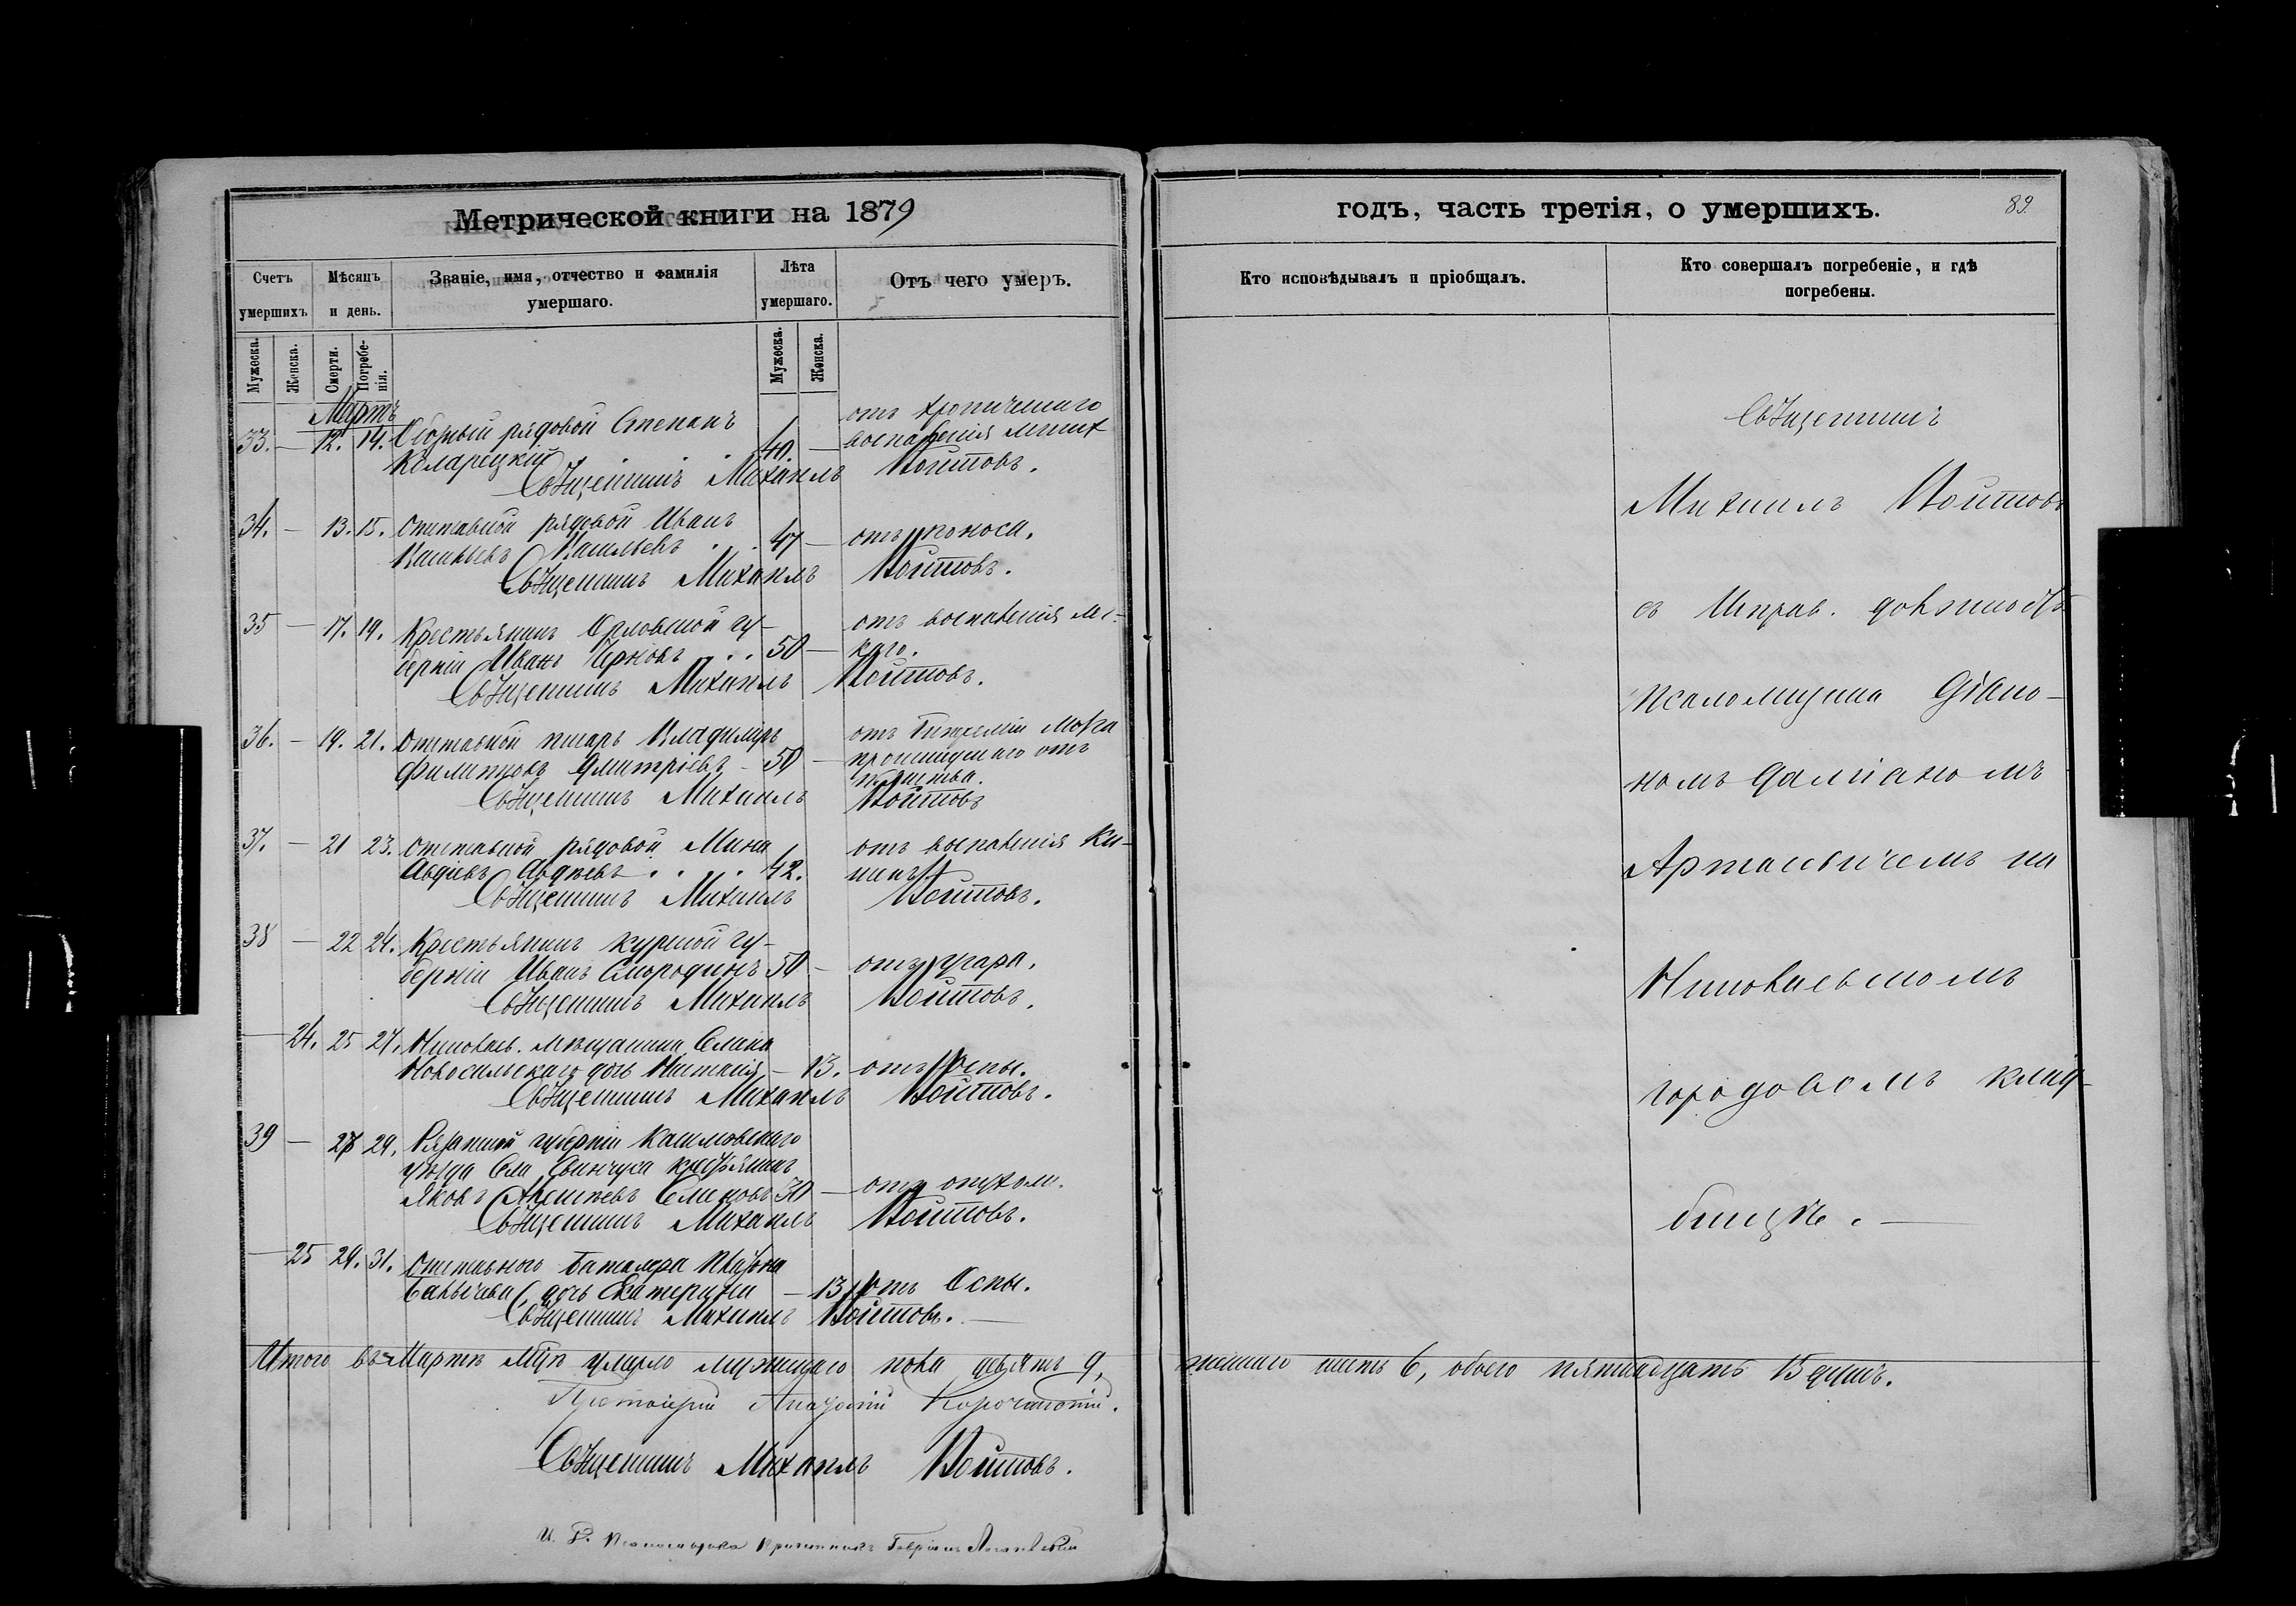 Метрической книги на 1879
годъ, часть третія, о умершихъ.
89.
Счетъ умершихъ
Мѣсяцъ и день.
Званіе, имя, отчество и фамилія умершаго.
Лѣта умершаго.
Отъ чего умеръ.
Кто исповѣдывалъ и пріобщалъ.
Кто совершалъ погребеніе, и гдѣ погребены.
Мужеска.
Женска.
Смерти.
Погребенія.
Мужеска.
Женска.
Мартъ
33. — 12. 14. рядовой Степанъ 40. — отъ хроническаго
воспаленія
Священникъ Михаилъ Войтовъ.
34. — 13. 15. Отставной рядовой Иванъ
Васильевъ Васильевъ . . 47 — отъ поноса.
Священникъ Михаилъ Войтовъ.
35 — 17. 19. Крестьянинъ Орловской гу-
берніи Иванъ Черновъ . . 50 — отъ воспаленія лег-
каго.
Священникъ Михаилъ Войтовъ.
36. — 19. 21. Отставной писарь Владиміръ
Филиповъ Дмитріевъ — 50 — отъ мозга
отъ
Священникъ Михаилъ Войтовъ
37. — 21 23. Отставной рядовой Мина
Авдіевъ Авдѣевъ . . . 42. отъ воспаленія Ки-
шекъ.
Священникъ Михаилъ Войтовъ.
38 — 22 24. Крестьянинъ Курской гу-
берніи Иванъ Смородинъ 50 — отъ угара.
Священникъ Михаилъ Войтовъ.
— 24. 25 27. Николаев. мѣщанина Семена
Новосильскаго дочь Наталія — 13. отъ Оспы.
Священникъ Михаилъ Войтовъ.
39 — 27 29. Рязанской губерніи Касимовскаго
уѣзда Села крестьянинъ
Яковъ Семеновъ 30 — отъ опухоли.
Священникъ Михаилъ Войтовъ.
— 25 29. 31. Отставного баталера
дочь Екатерина — 13 отъ Оспы.
Священникъ Михаилъ Войтовъ. —
Священникъ
Михаилъ Войтовъ
съ Исправ. должность
псаломщика Діако-
номъ Даміаномъ
Артасевичемъ на
Николаевскомъ
городовомъ клад-
бищѣ. —
Итого въ Мартѣ м҃цѣ умерло мужескаго пола девять 9, женскаго шесть 6, обоего пятнадцать 15 душъ.
Протоіерей Корочанскій.
Священникъ Михаилъ Войтовъ.
И. д. Псаломщика Гавріилъ